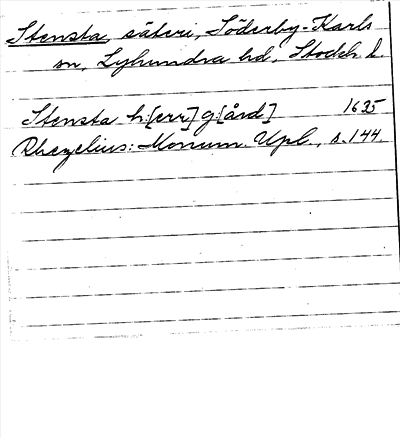 Stensta, säteri, Söderby-Karls
sn, Lyhundra hd, Stockh. l.
Stensta h:[err]g:[ård] 1635
Rhezelius: Monum. Upl., s. 144.